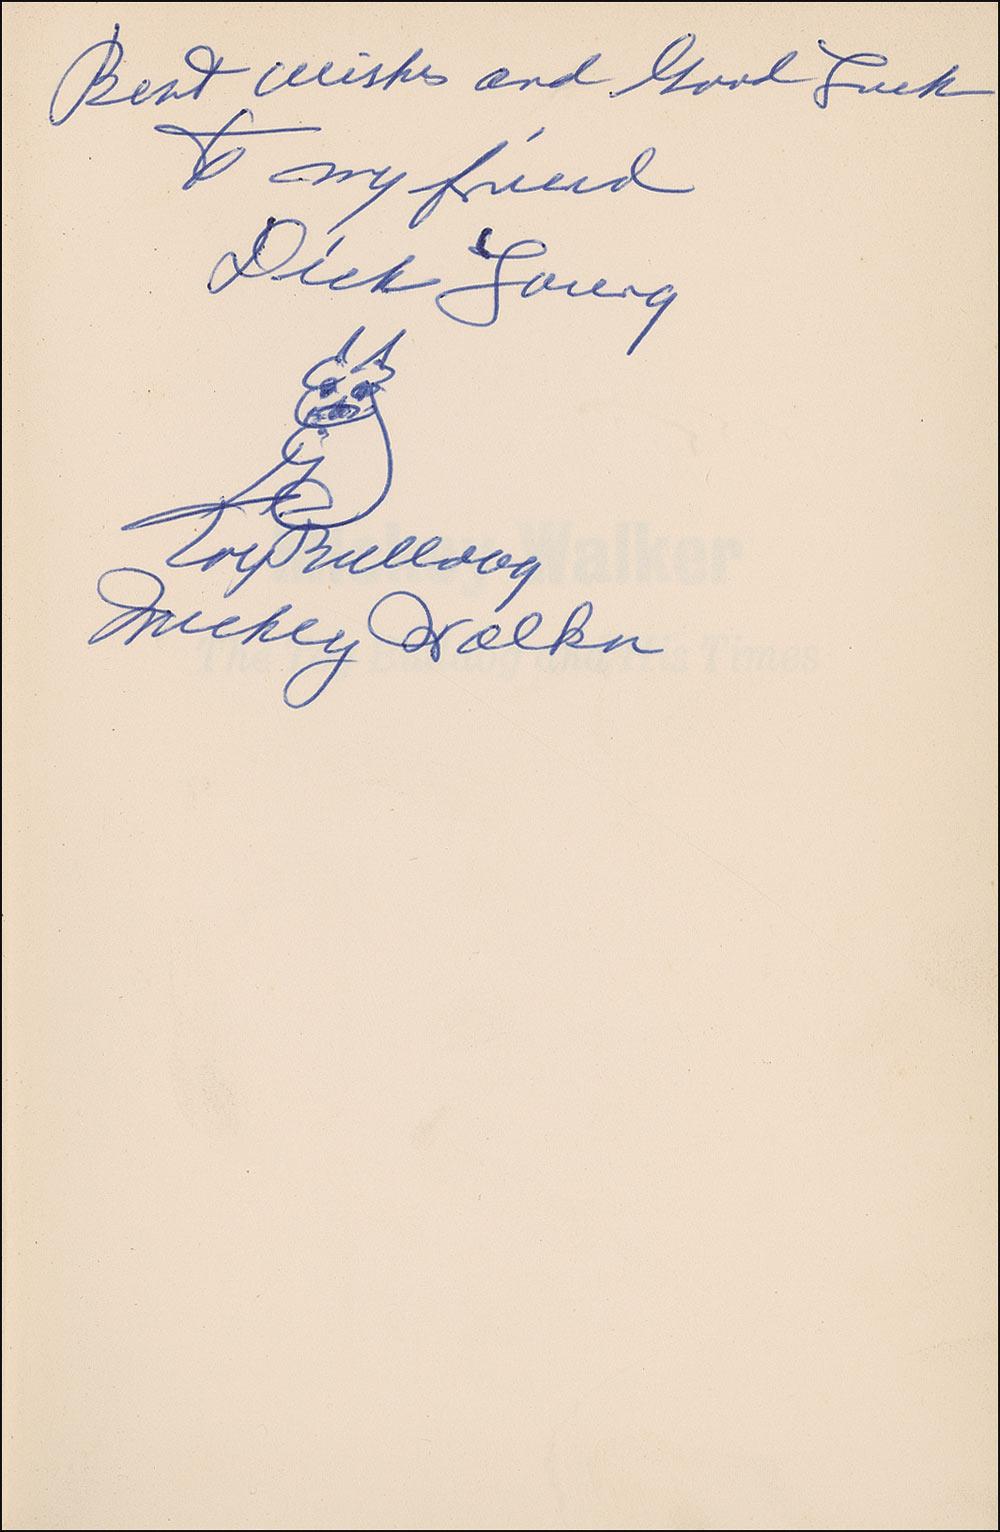 Best wishes and Good Luck
To my friend
Dick Young
Toy Bulldog
Mickey Walker
Mickey Walker
The Toy Bulldog and His Times